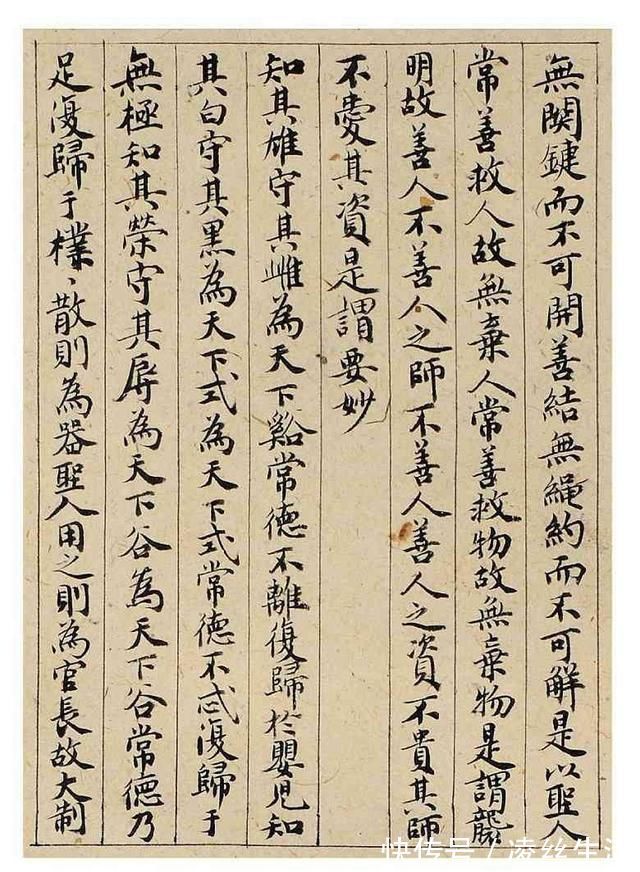 無関鍵而不可開善結無繩約而不可解是以聖人
常善救人故無棄人常善救物故無棄物是謂襲
明故善人不善人之師不善人善人之資不貴其師
不愛其資是謂要妙
知其雄守其雌為天下谿常德不離復歸於嬰兒知
其白守其黑為天下式為天下式常德不忒復歸于
無極知其榮守其辱為天下谷為天下谷常德乃
足復歸于樸〻散則為器聖人用之則為官長故大制
快传号/凌丝生活